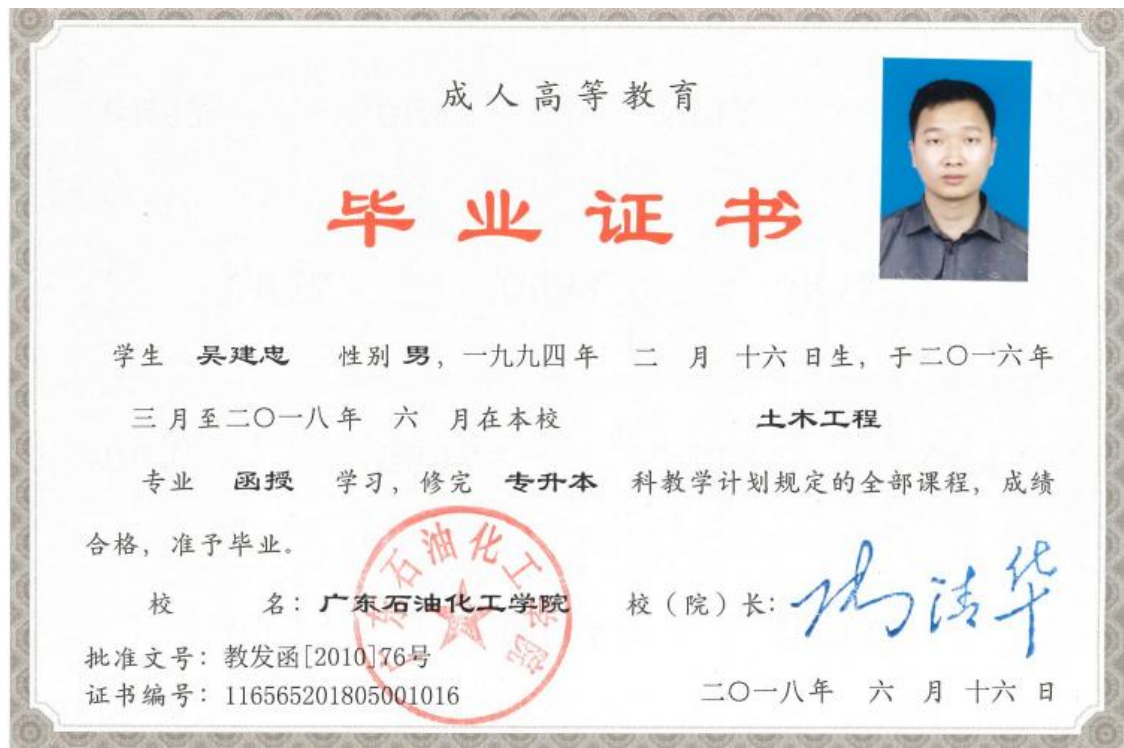 成人高等教育
毕业证书
学生 吴建忠 性别 男，一九九四年 二 月 十六 日生，于二〇一六年
三月至二〇一八年 六 月在本校 土木工程
专业 函授 学习，修完 专升本 科教学计划规定的全部课程，成绩
合格，准予毕业。
校 名：广东石油化工学院 校（院）长：
广东石油化工学院
批准文号：教发函[2010]76号
证书编号：116565201805001016 二〇一八年 六 月 十六 日